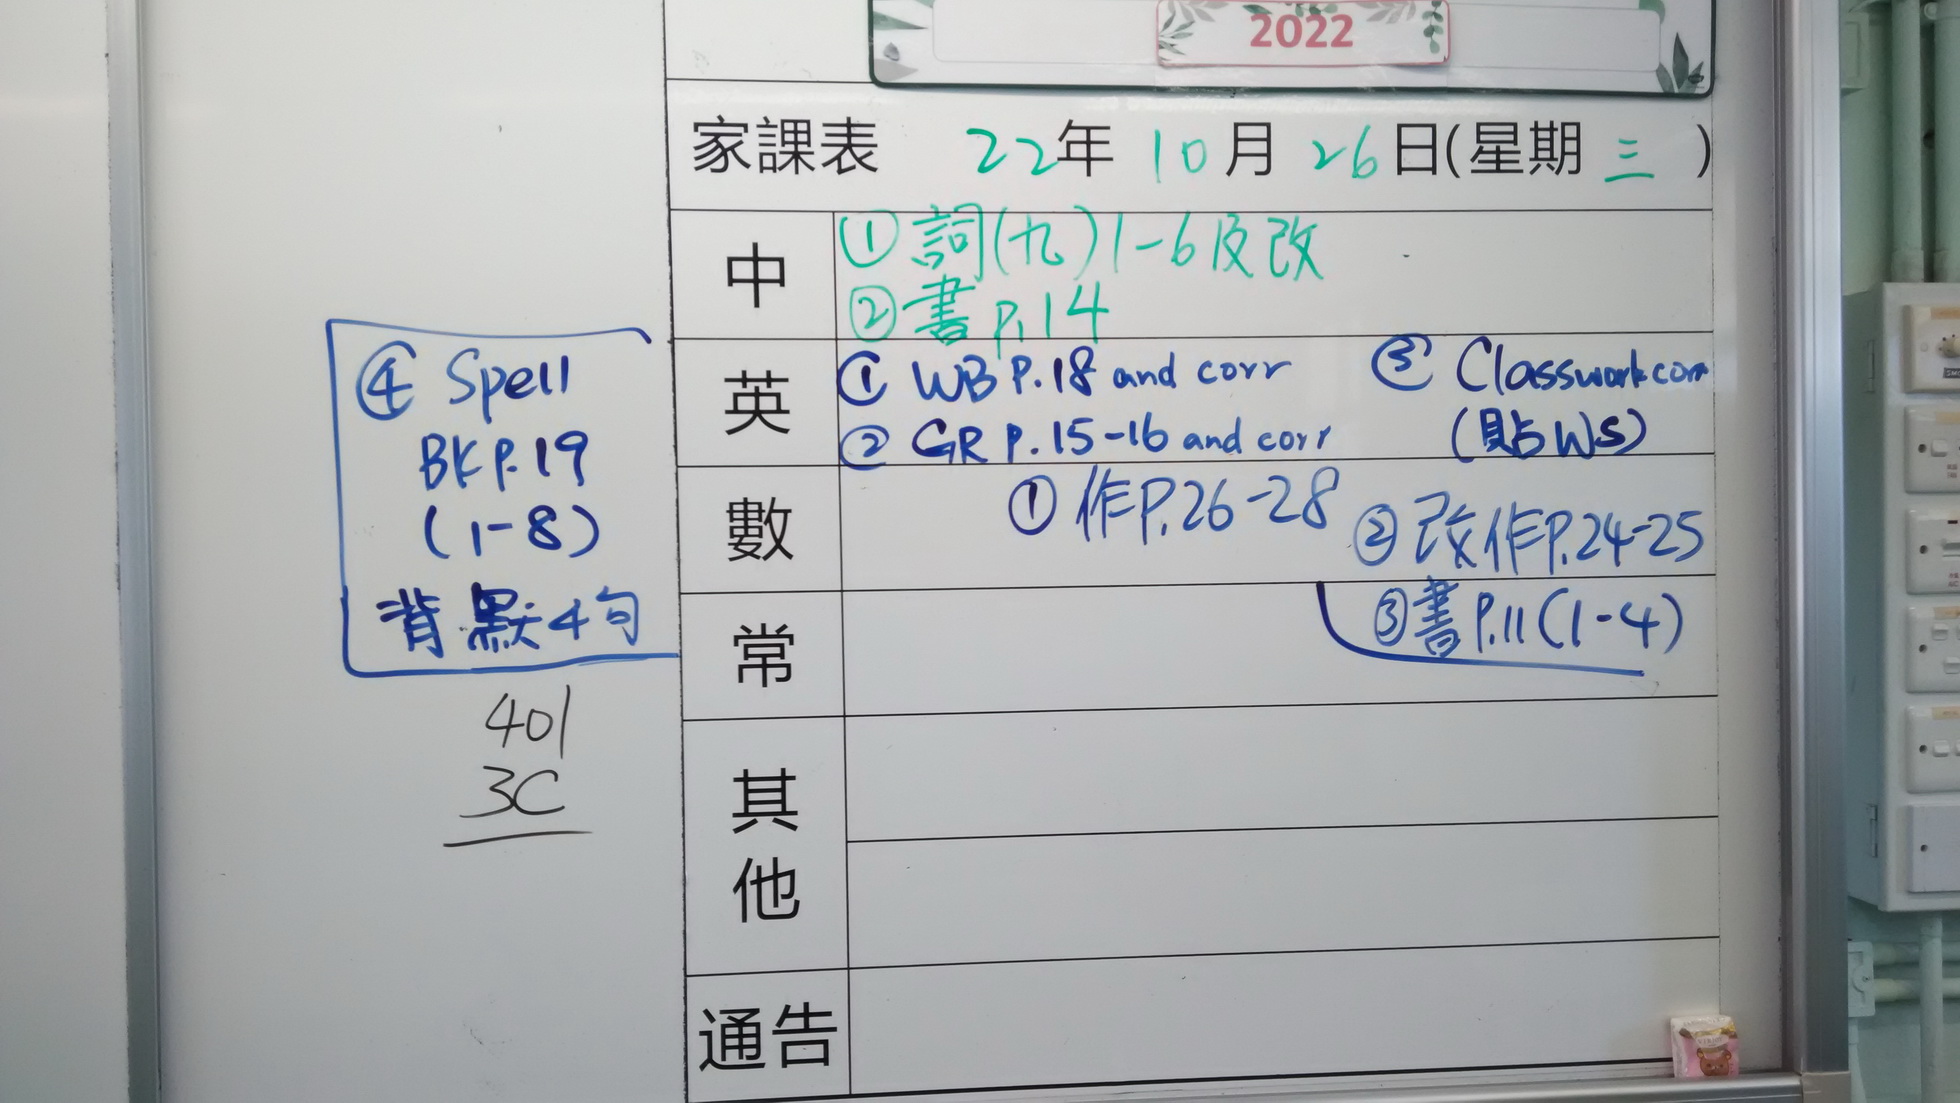 2022
家課表 22年 10月 26日(星期三)
中
① 詞(九)1-6及改
② 書 p.14
英
① WB P.18 and corr
② GR P.15-16 and corr
③ Classwork corr
(貼WS)
④ Spell
BK P.19
(1-8)
背默4句
數
① 作P.26-28
② 改作P.24-25
③ 書P.11(1-4)
常
其他
通告
401
3C